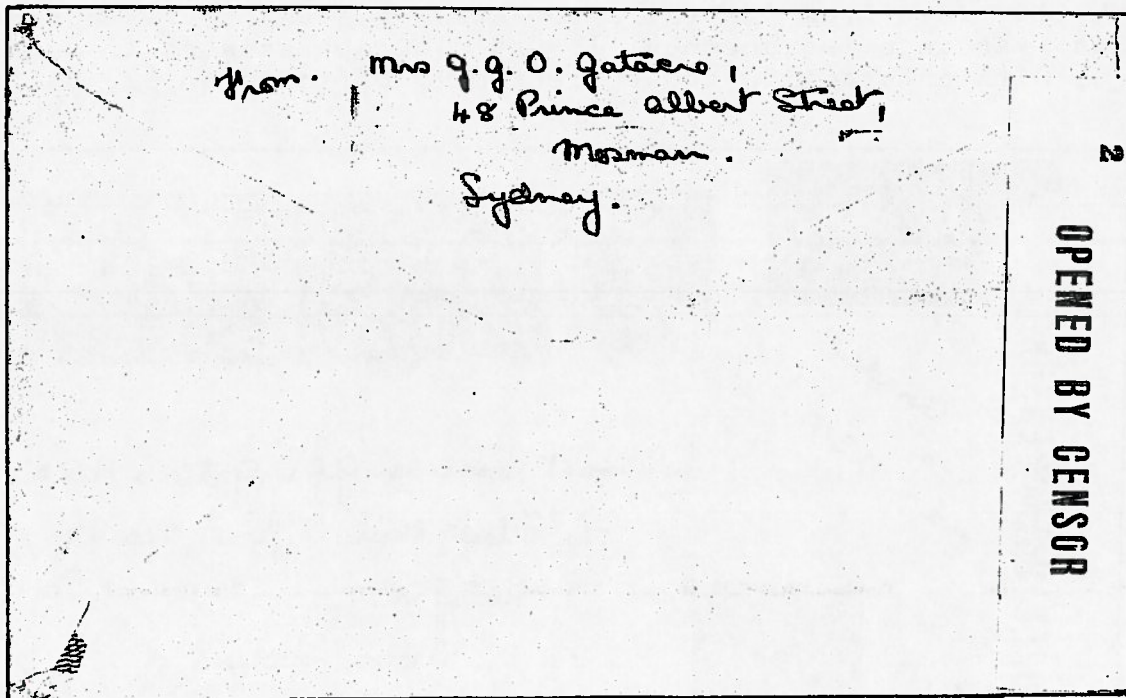 From. Mrs G. G. O. Gatacre,
48 Prince Albert Street,
Mosman.
Sydney.
OPENED BY CENSOR